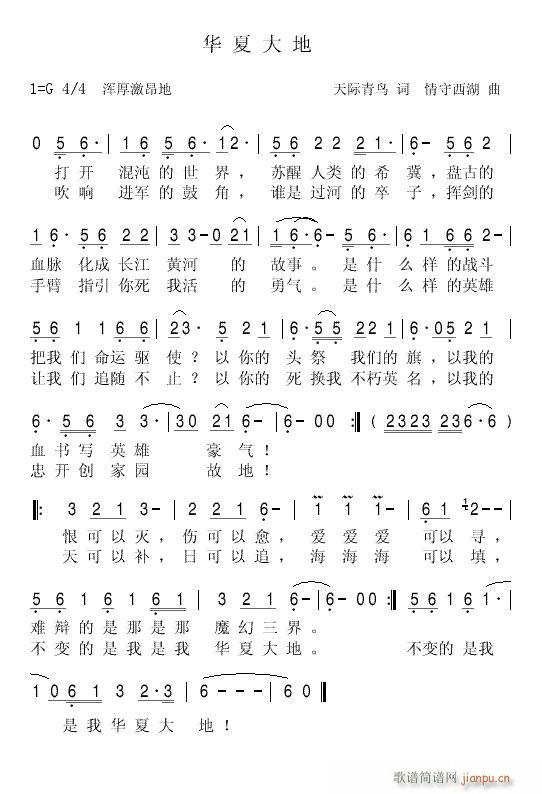 华夏大地
1=G 4/4 浑厚激昂地 天际青鸟 词 情守西湖 曲
0 5 6· | 16 56· 12· | 56 2 2 12 | 6- 56· |
打 开 混沌 的 世 界 ， 苏醒 人类 的 希 冀 ，盘古的
吹 响 进军 的 鼓 角 ， 谁是 过河 的 卒 子 ，挥剑的
16· 56 22 | 33-0 21 | 16·6- 56· | 61 66 2- |
血脉 化成 长江 黄河 的 故事 。 是 什 么 样 的战斗
手臂 指引 你死 我活 的 勇气 。 是 什 么 样 的英雄
56 1 1 66 | 23· 5 21 | 6·55 12· | 6·05 21 |
把我 们 命运 驱 使？ 以 你的 头祭 我们 的 旗 ，以我的
让我 们 追随 不 止？ 以 你的 死换我 不朽 英 名 ，以我的
6· 56 3 3· | 30 21 6- | 6-00 :| ( 2323 236·6 )
血 书 写 英雄 豪 气！
忠 开 创 家园 故 地！
|: 3 21 3- | 2 21 6- | 1 1 1- | 61 12-- |
恨 可以 灭 ，伤 可以 愈 ， 爱 爱 爱 可以 寻 ，
天 可以 补 ，日 可以 追 ， 海 海 海 可以 填 ，
56 1 61 61 | 3 21 6- | 6-00 :| 56 16 1· |
难 辩 的 是 那 是 那 魔 幻 三 界 。
不 变 的 是 我 是 我 华 夏 大 地 。 不变的 是我
1 06 31 2·3 | 6--- | 60 ||
是 我 华 夏 大 地！
歌谱简谱网
jianpu.cn